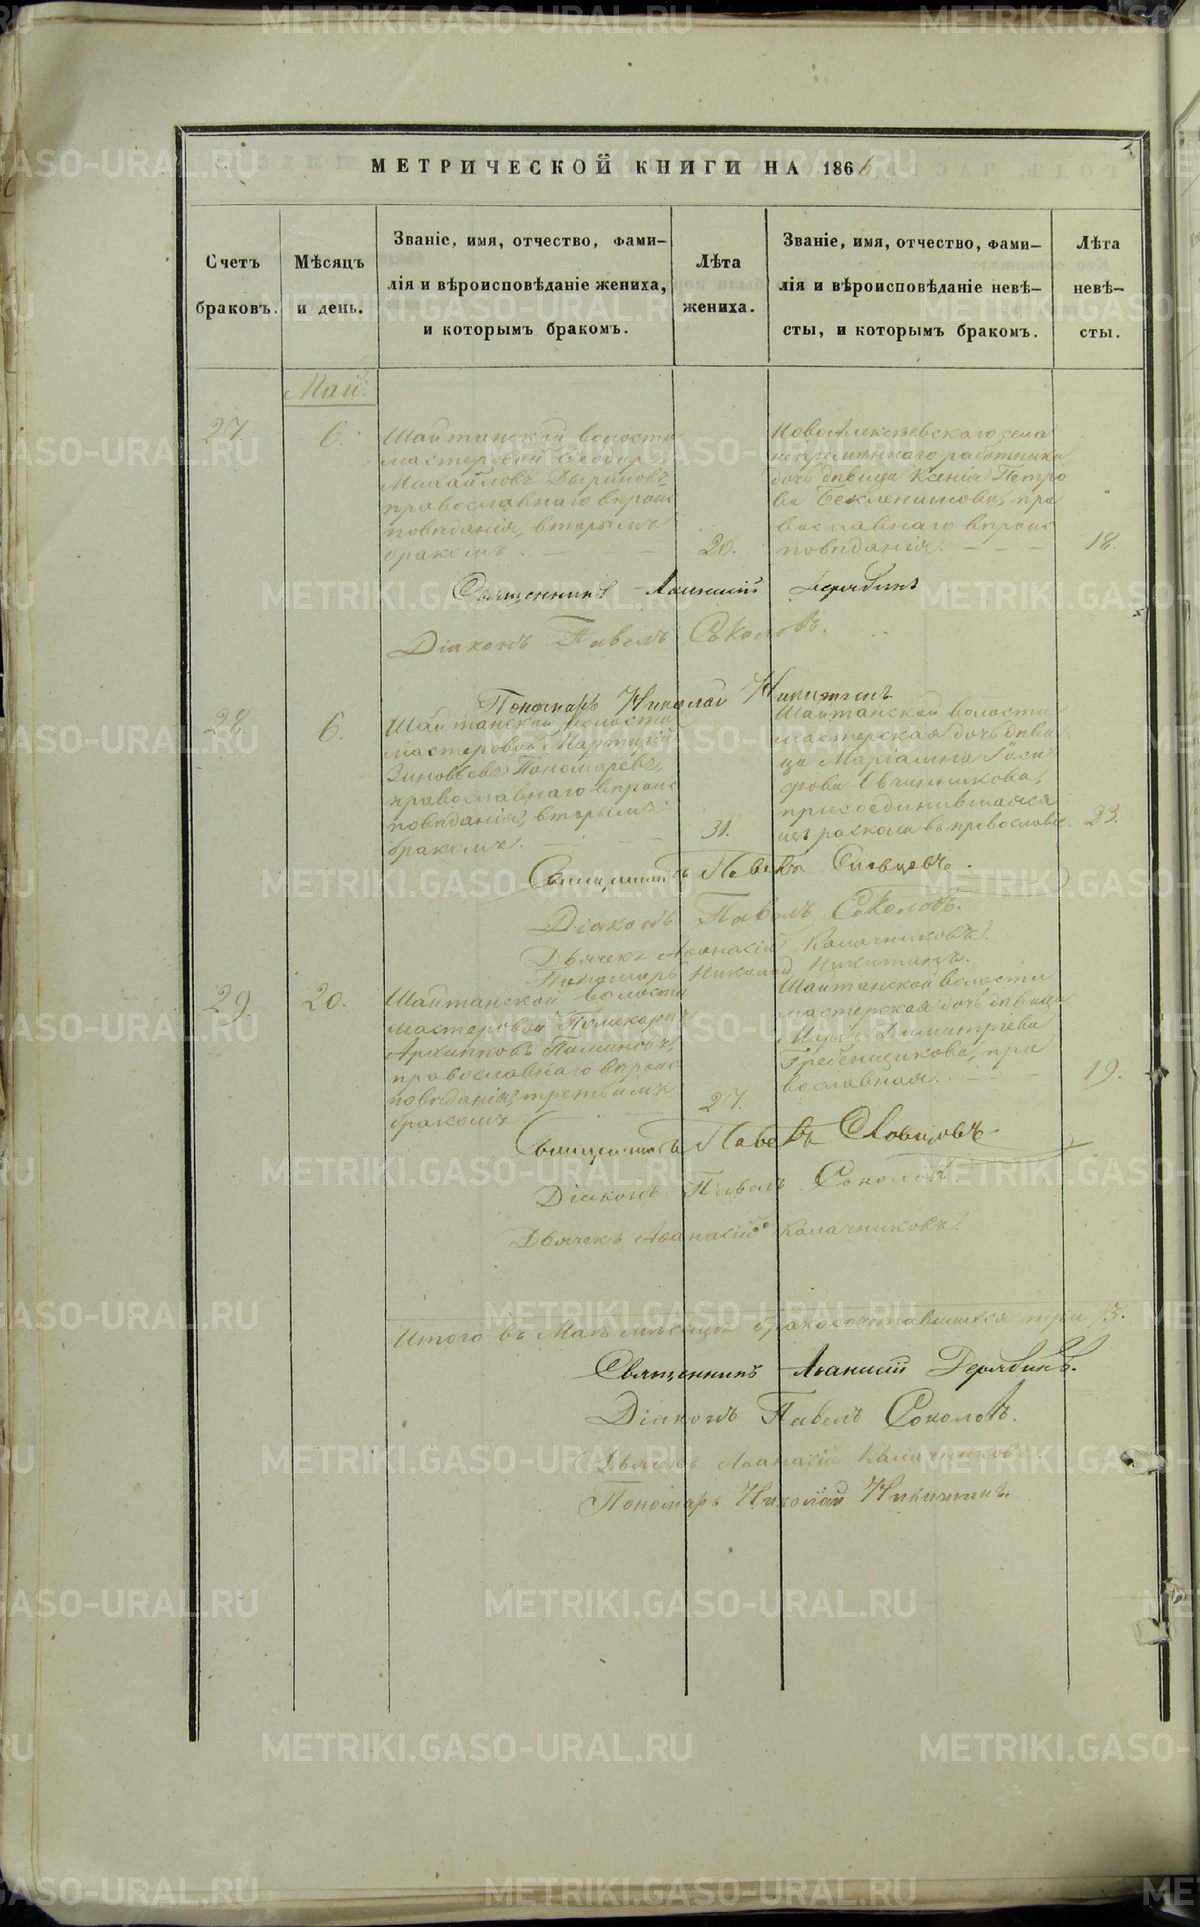 МЕТРИЧЕСКОЙ КНИГИ НА 1866
Счетъ
браковъ.
Мѣсяцъ
и день.
Званіе, имя, отчество, фами-
лія и вѣроисповѣданіе жениха,
и которымъ бракомъ.
Лѣта
жениха.
Званіе, имя, отчество, фами-
лія и вѣроисповѣданіе невѣ-
сты, и которымъ бракомъ.
Лѣта
невѣ-
сты.
Май.
27.
6.
Шайтанской волости
мастеровой Ѳеодоръ
Михайловъ
православнаго вѣроис
повѣданія, вторымъ
бракомъ.
20.
НовоАлексѣевскаго села
непремѣннаго работника
дочь дѣвица Ксенія Петро
ва Бекленищева, пра
вославнаго вѣроис
повѣданія.
18.
Священникъ Аѳанасій Дерябинъ
Діаконъ Павелъ Соколовъ.
Пономарь Николай Никитинъ.
28.
6.
Шайтанской волости
мастеровой
Зиновьевъ Пономаревъ,
православнаго вѣроис
повѣданія, вторымъ
бракомъ.
31.
Шайтанской волости
мастерская дочь дѣви
ца Маріамна Іоси
фова Овчинникова,
присоединившаяся
изъ раскола въ православіе.
23.
Священникъ Павелъ Словцовъ.
Діаконъ Павелъ Соколовъ.
Дьячекъ Аѳанасій Калачниковъ.
Пономарь Николай Никитинъ.
29.
20.
Шайтанской волости
мастеровой Поликарпъ
Архиповъ Пиминовъ,
православнаго вѣроис
повѣданія, третьимъ
бракомъ
27.
Шайтанской волости
мастерская дочь дѣвица
Димитріева
Гребенщикова, пра
вославная.
19.
Священникъ Павелъ Словцовъ
Діаконъ Павелъ Соколовъ.
Дьячекъ Аѳанасій Калачниковъ.
Итого въ Маѣ мѣсяцѣ бракосочетавшихся три 3.
Священникъ Аѳанасій Дерябинъ.
Діаконъ Павелъ Соколовъ.
Дьячекъ Аѳанасій Калачниковъ
Пономарь Николай Никитинъ
METRIKI.GASO-URAL.RU